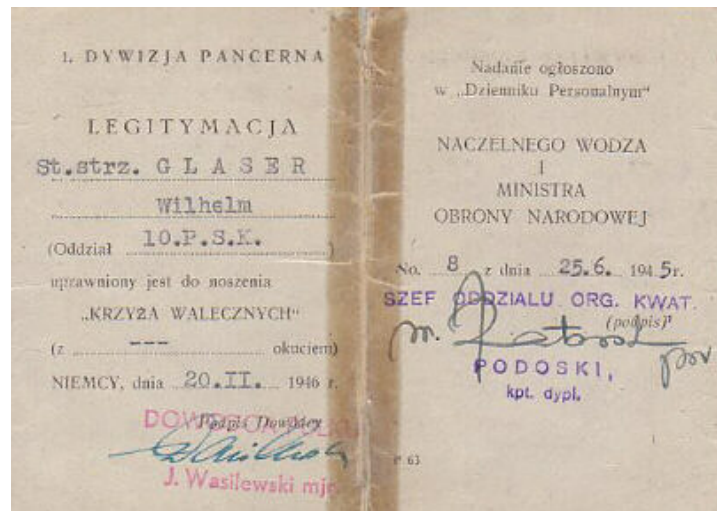 1. DYWIZJA PANCERNA
LEGITYMACJA
St.strz. G L A S E R
Wilhelm
(Oddział 10.P.S.K. )
uprawniony jest do noszenia
„KRZYŻA WALECZNYCH“
(z --- okuciem)
NIEMCY, dnia 20.II. 1946 r.
Podpis Dowódcy
J. Wasilewski mjr.
Nadanie ogłoszono
w „Dzienniku Personalnym“
NACZELNEGO WODZA
I
MINISTRA
OBRONY NARODOWEJ
No. 8 z dnia 25.6. 1945r.
SZEF ODDZIALU ORG. KWAT.
(podpis)
PODOSKI,
kpt. dypl.
P 63